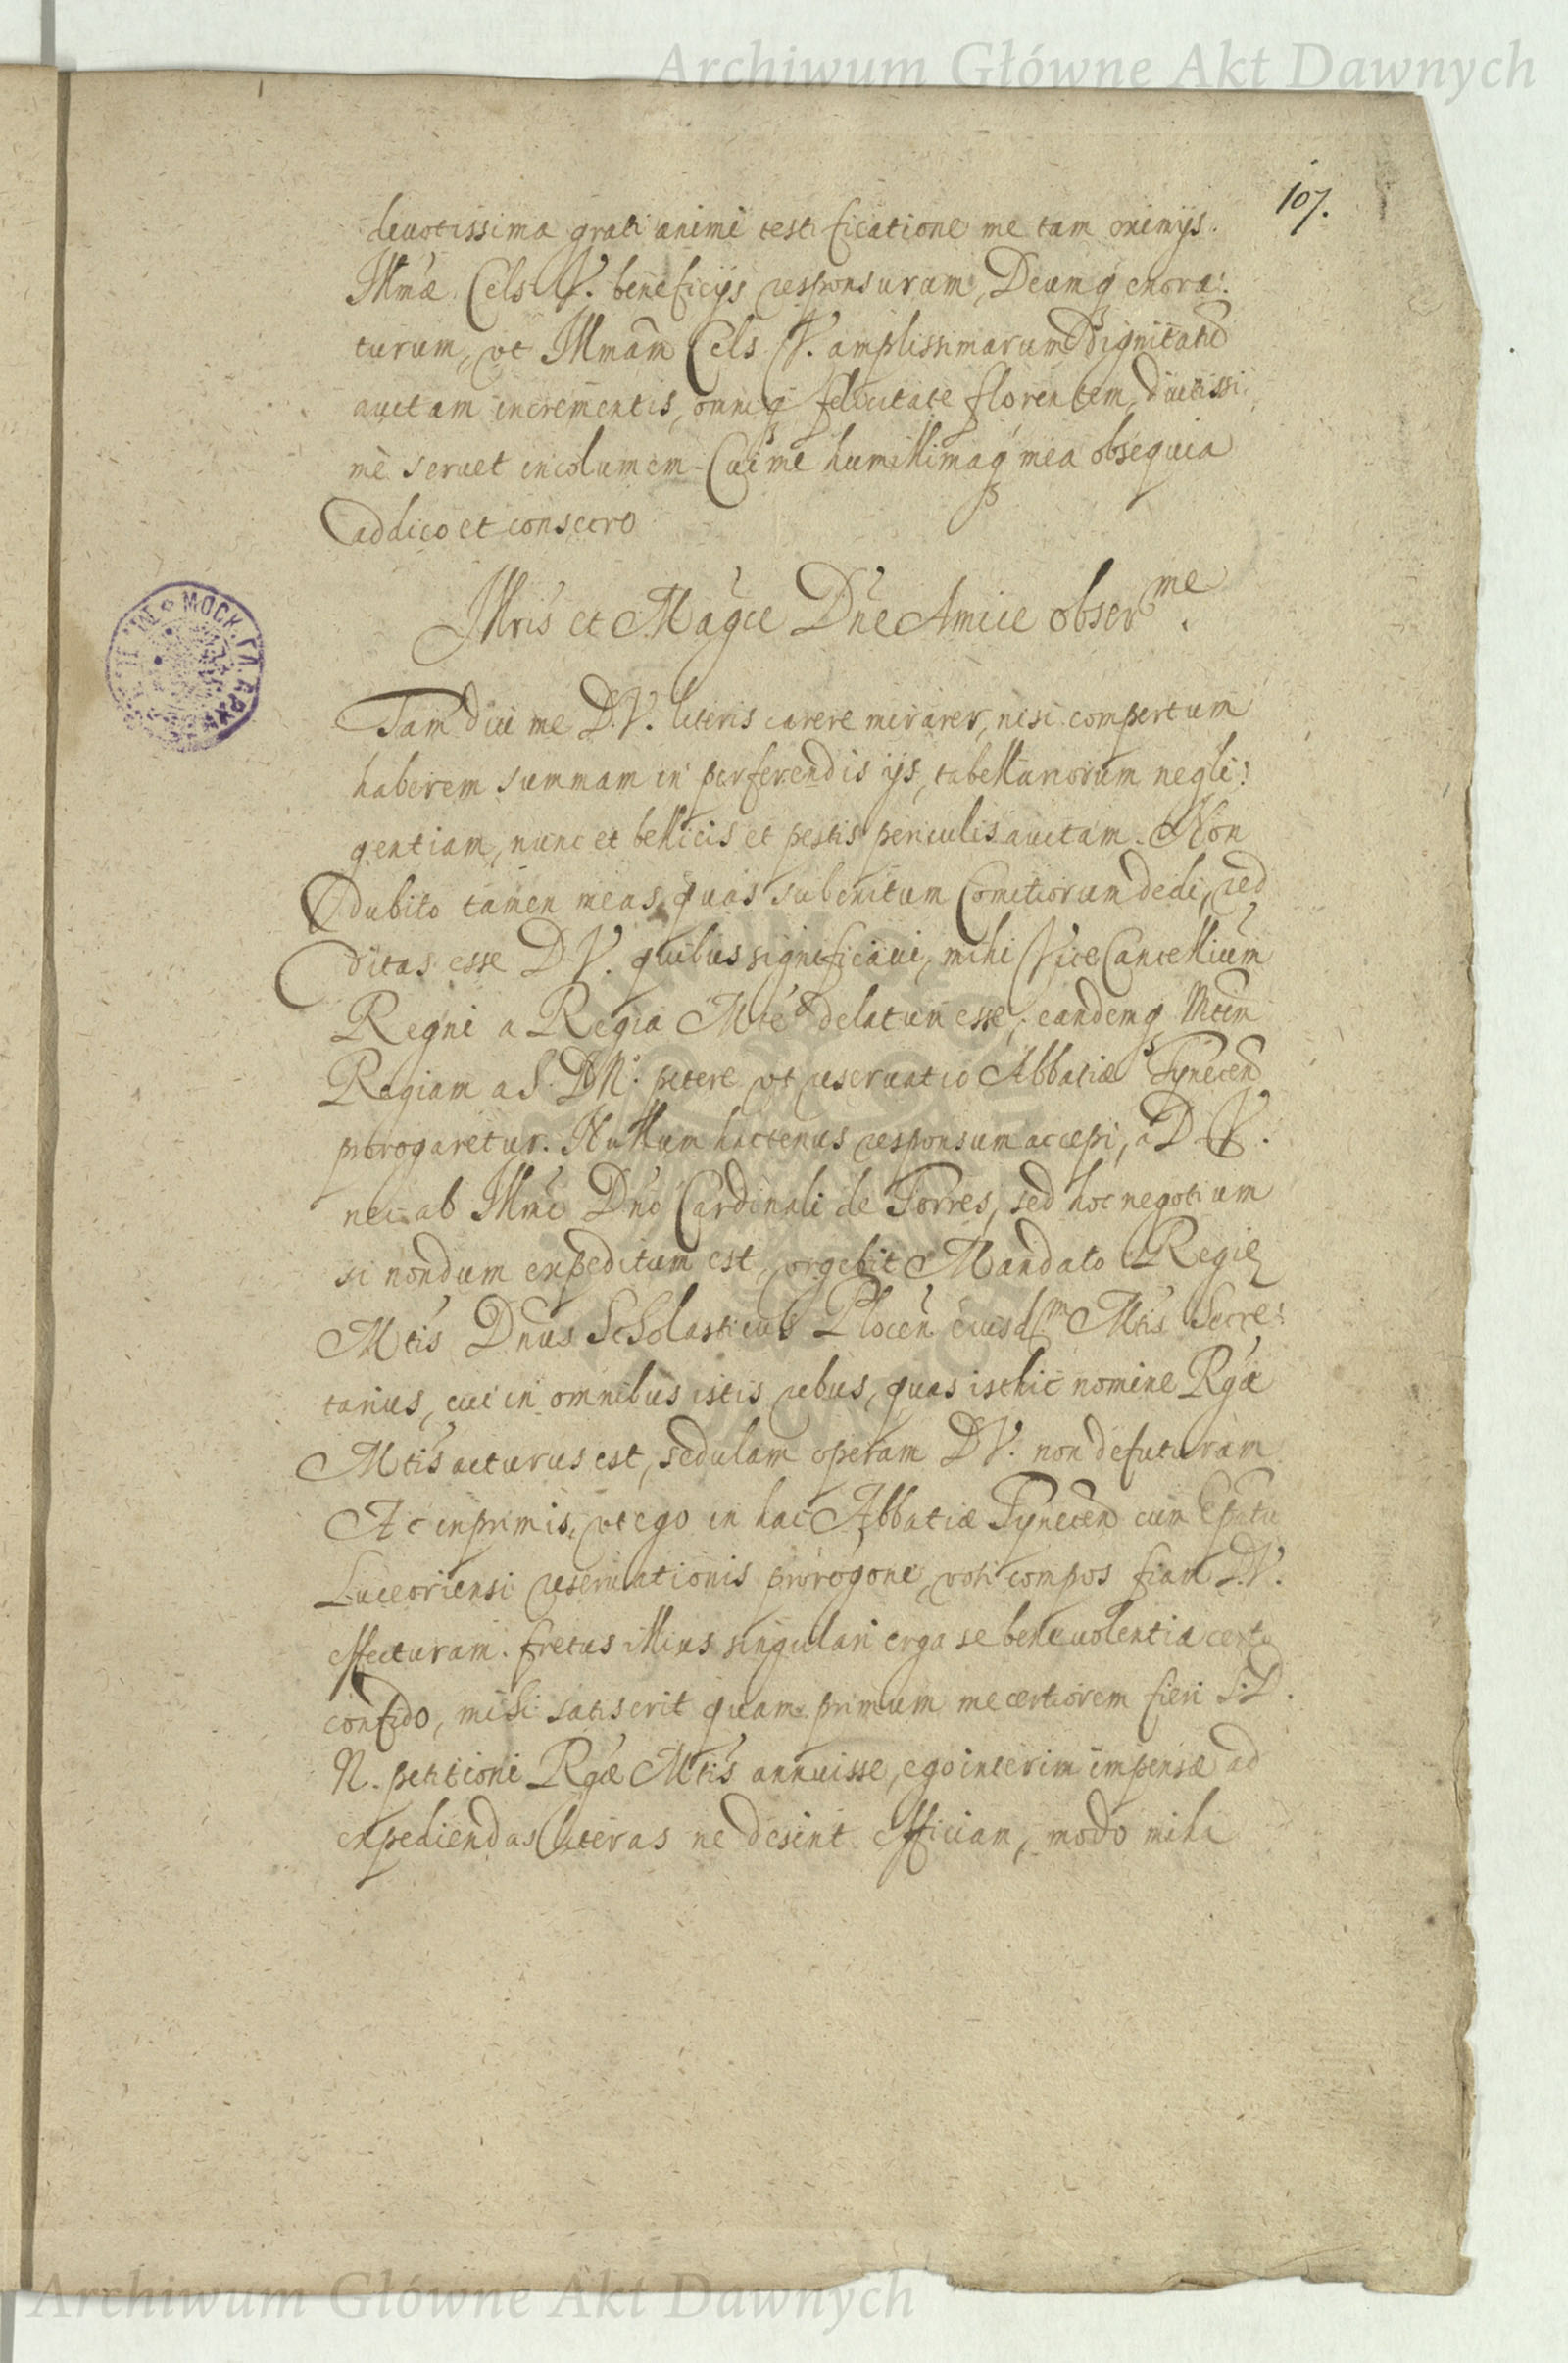 Archiwum Główne Akt Dawnych
107.
deuotissima grati animi testificatione me tam eximijs
Illmæ Cels V. beneficijs responsurum, Deumq exora:
turum, vt Illmam Cels V. amplissimarum Dignitatū
auctam incrementis, omniq felicitate florentem, diutissi:
mè seruet incolumem. Cui me humillimaq mea obsequia
addico et consecro
Illris et Magce Dne Amice obserme.
Tam diu me D.V. literis carere mirarer, nisi compertum
haberem summam in perferendis ijs, tabellariorum negli:
gentiam, nunc et bellicis et pestis periculis auctam. Non
dubito tamen meas, quas sub exitum Comitiorum dedi, red
ditas esse D V. quibus significaui, mihi ViceCancellium
Regni a Regia Mte delatum esse, eandemq Mtem
Regiam a S. D N. petere vt reseruatio Abbatiæ Tynecen
prorogaretur. Nullum hactenus responsum accepi, a D V.
nec ab Illmo Dno Cardinali de Torres, sed hoc negotium
si nondum expeditum est, vrgebit Mandato Regiæ
Mtis Dnus Scholasticus Plocen eiusdem Mtis Secre:
tarius, cui in omnibus istis rebus, quas isthic nomine Rgæ
Mtis acturus est, sedulam operam D V. non defuturam
Ac inprimis, vt ego in hac Abbatiæ Tynecen cum Epatu
Luceoriensi reseruationis prorogone, voti compos fiam D.V.
effecturam. fretus illius singulari erga se beneuolentia certo
confido, mihi satis erit quam primum me certiorem fieri S.D.
N. petitioni Rgæ Mtis annuisse, ego interim impensæ ad
expediendas literas ne desint efficiam, modo mihi
Archiwum Główne Akt Dawnych